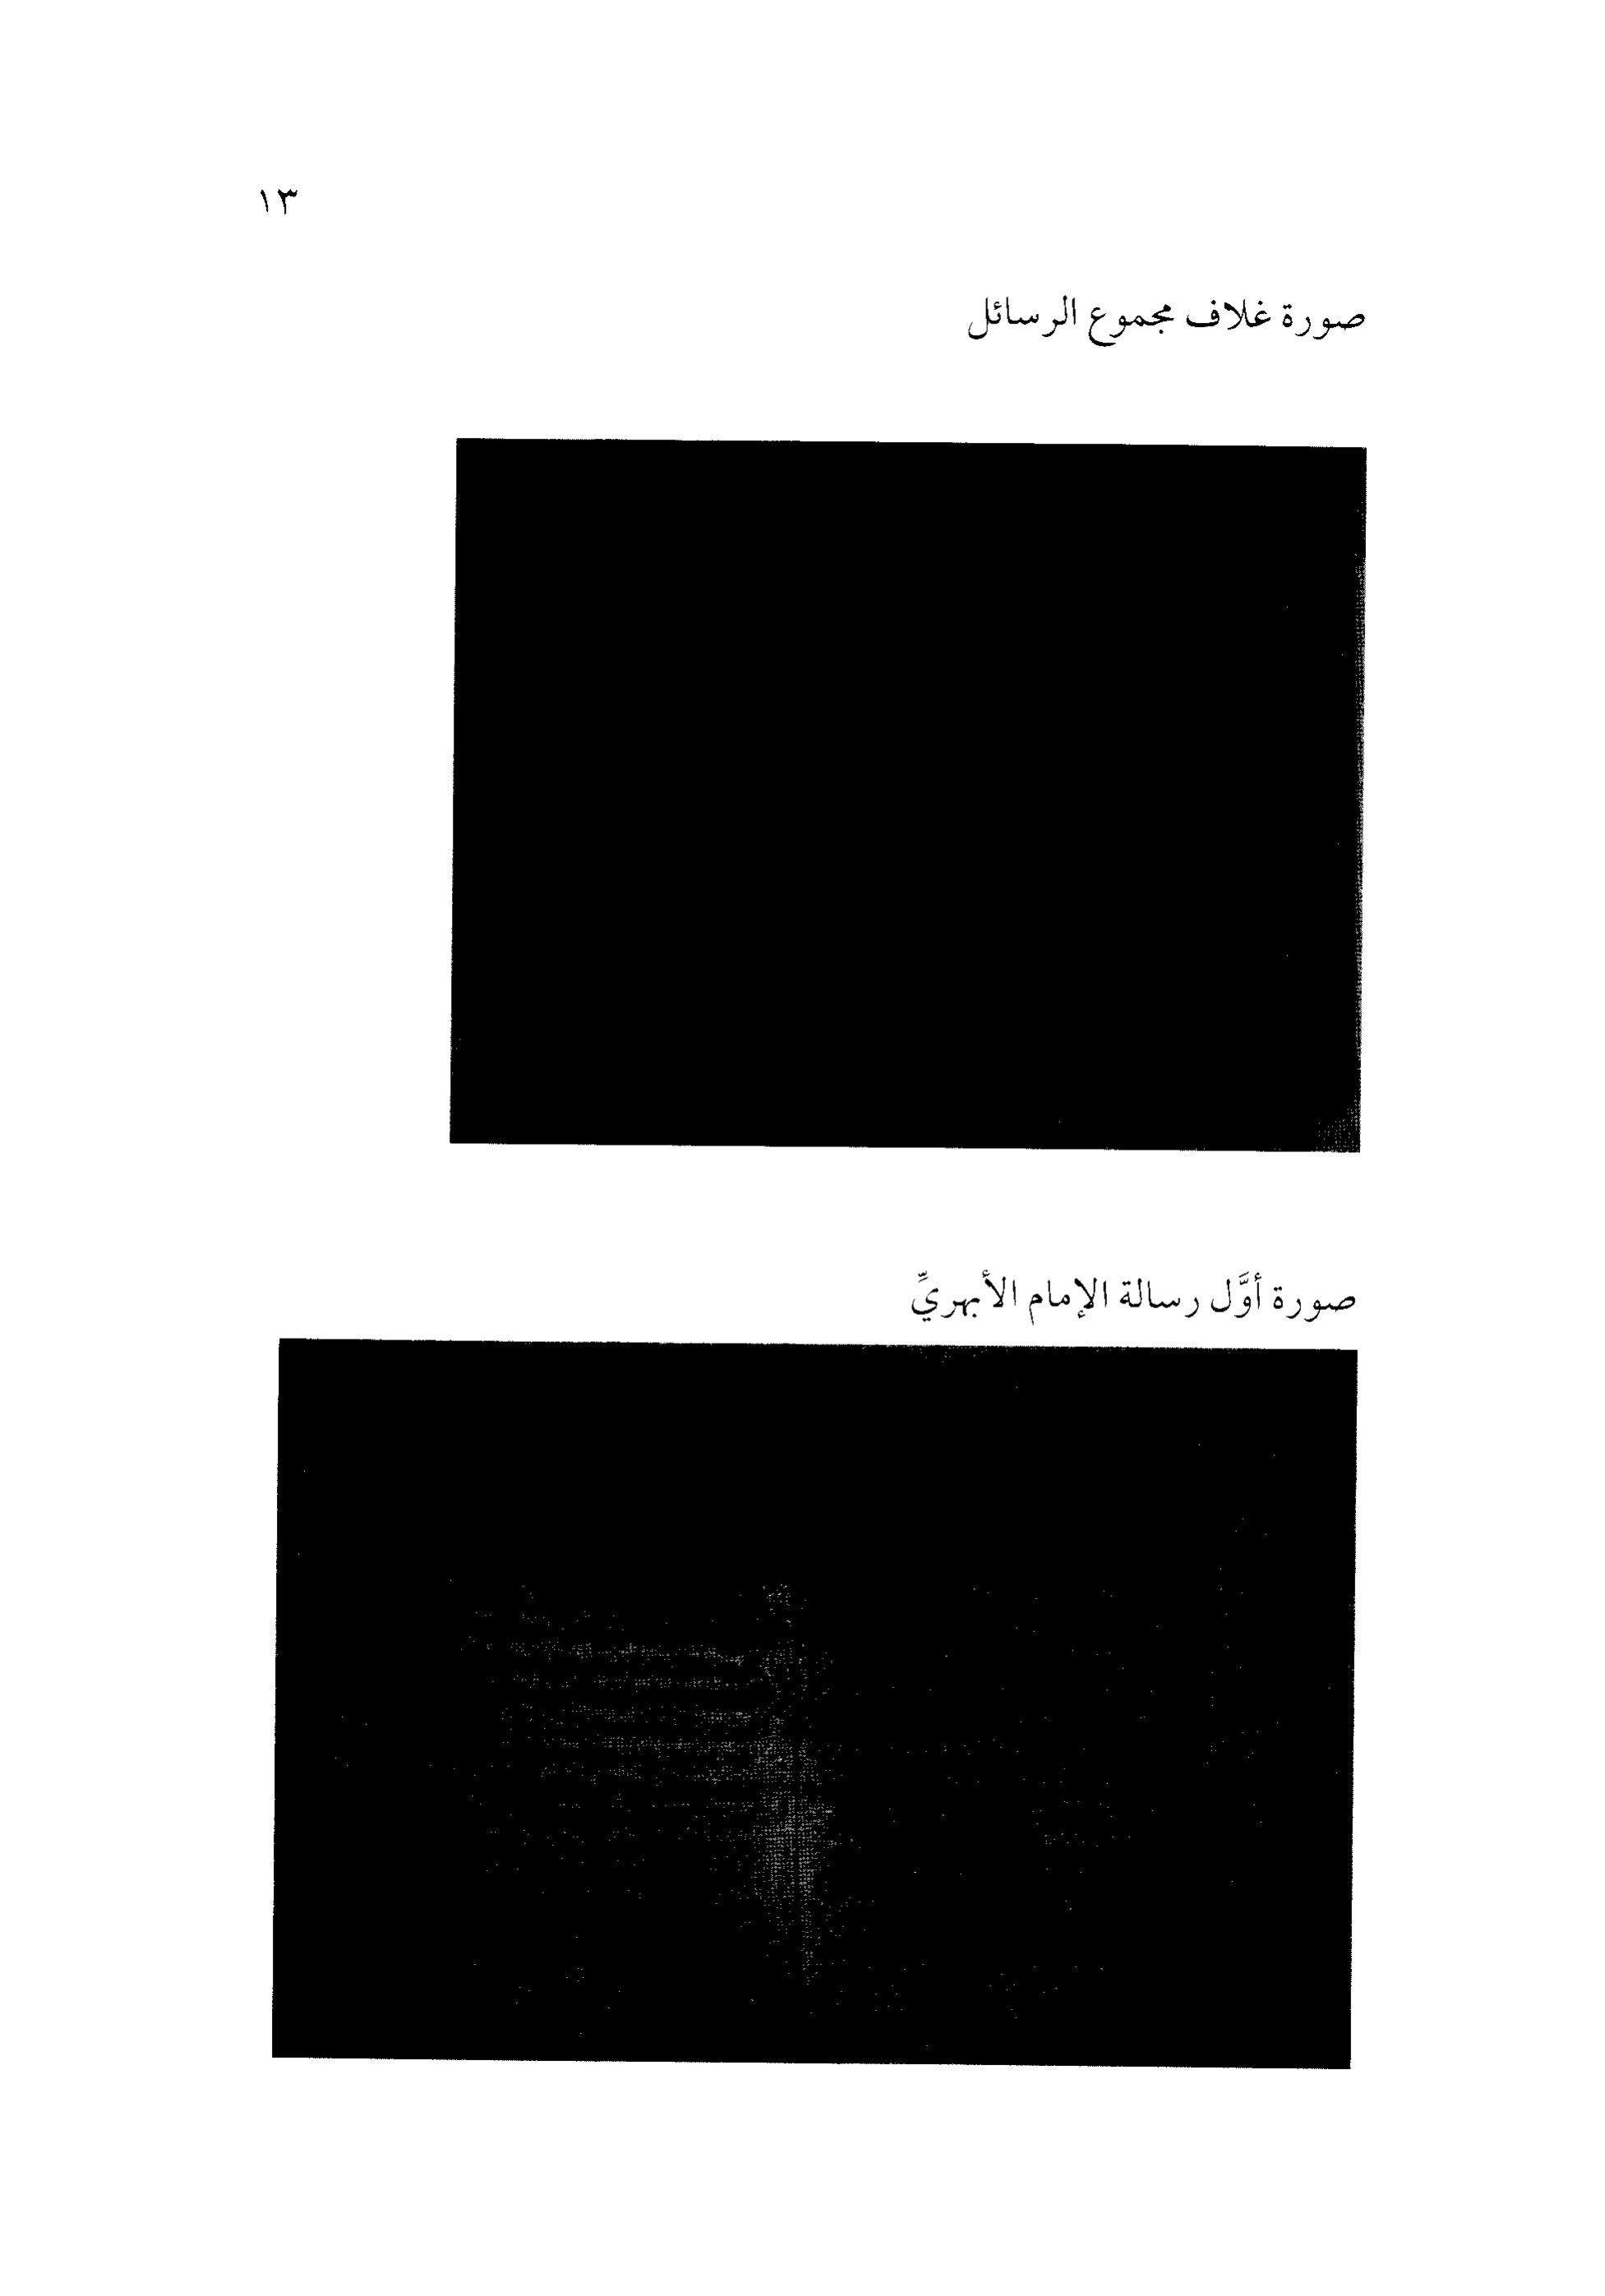 ١٣
صورة غلاف مجموع الرسائل
صورة أوَّل رسالة الإمام الأبهريِّ